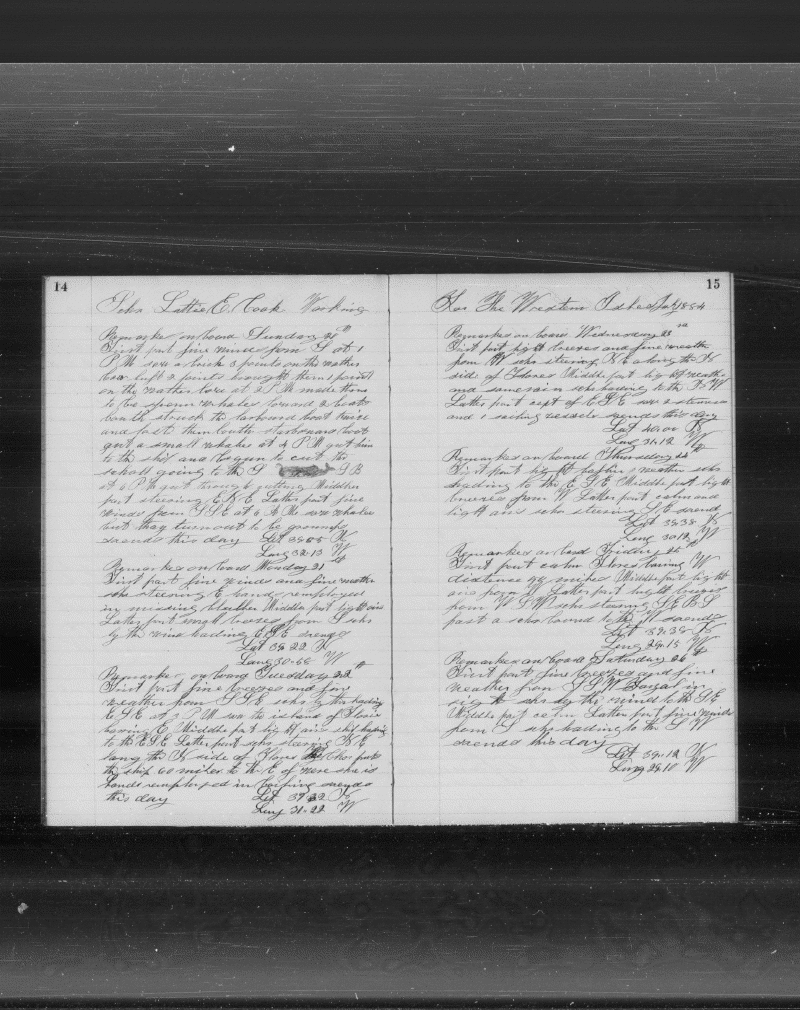 14
Schr Lottie E. Cook Working
Remarks on board Sunday 20th
First part fine winds from S at 1
P M saw a brick 3 points on the wether
bow luft 2 points brought them 1 point
on the wether bow at 2 P M made them
to be sperm whales lowerd 2 boats
both struck the larboard boat twice
and lost them both starboard boat
got a small whale at 4 P M got him
to the ship and begun to cut the
school going to the S S B
at 6 P M got through cutting Middle
part steering E N E Latter part fine
winds from S S E at 6 A M saw whales
but they turn out to be
so ends this day Lat 38-05 N
Long 32-13 W
Remarks on board Monday 21st
First part fine winds and fine weather
schr steering E hands employed
in Middle part light airs
Latter part small breeses from S schr
by the wind heading E S E so ends
Lat 38 22 N
Long 30-58 W
Remarks on board Tuesday 22th
First part fine breeses and fine
weather from S S E schr by the heading
E S E at P M saw the island of Flores
bearing E Middle part light airs ship heading
to the E S E Latter part schr steering N E
along the N side of Flores
the ship 60 miles to N E of were she is
hands employed in so ends
this day Lat 39-32 N
Long 31-22 W
15
For The Western Isles July 1884
Remarks on board Wednesday 23rd
First part light breeses and fine weather
from W schr steering N E along the N
side of Flores Middle part light weather
and some rain schr heading to the N W
Latter part
and 1 sailing vessels so ends this day
Lat 40-00 N
Long 31-12 W
Remarks on board Thursday 24th
First part light weather schr
heading to the E S E Middle part light
breeses from W Latter part calm and
light airs schr steering S E so ends
Lat 39-38 N
Long 30-12 W
Remarks on board Friday 25th
First part calm Flores bearing W
distence 90 miles Middle part light
airs from S Latter part light breeses
from W S W schr steering S E B S
past a schr bound to the W so ends
Lat 39-38 N
Long 29-15 W
Remarks on board Saturday 26th
First part fine breeses and fine
weather from S S W Fayal in
sight schr by the wind to the S E
Middle part calm Latter part fine winds
from S schr heading to the S W
so ends this day
Lat 39-12 N
Long 29-10 W